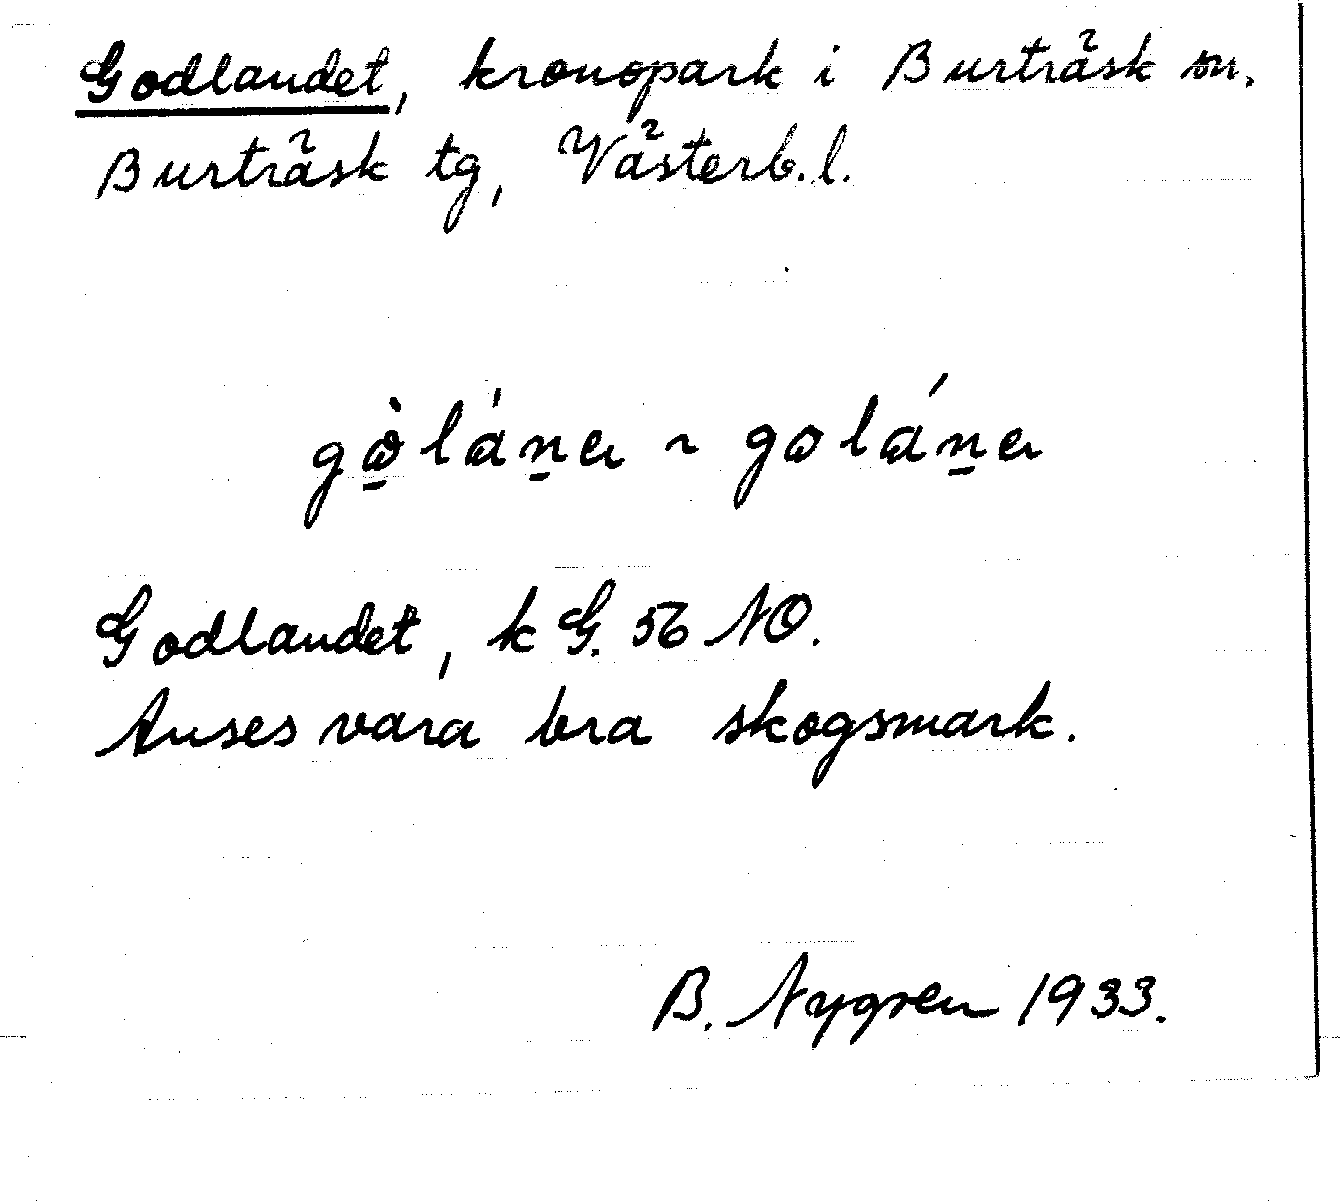 Godlandet, kronopark i Burträsk sn.
Burträsk tg, Västerb. l.
gò̱láṉa ~ goláṉa
Godlandet, k G. 56 NO.
Anses vara bra skogsmark.
B. Nygren 1933.